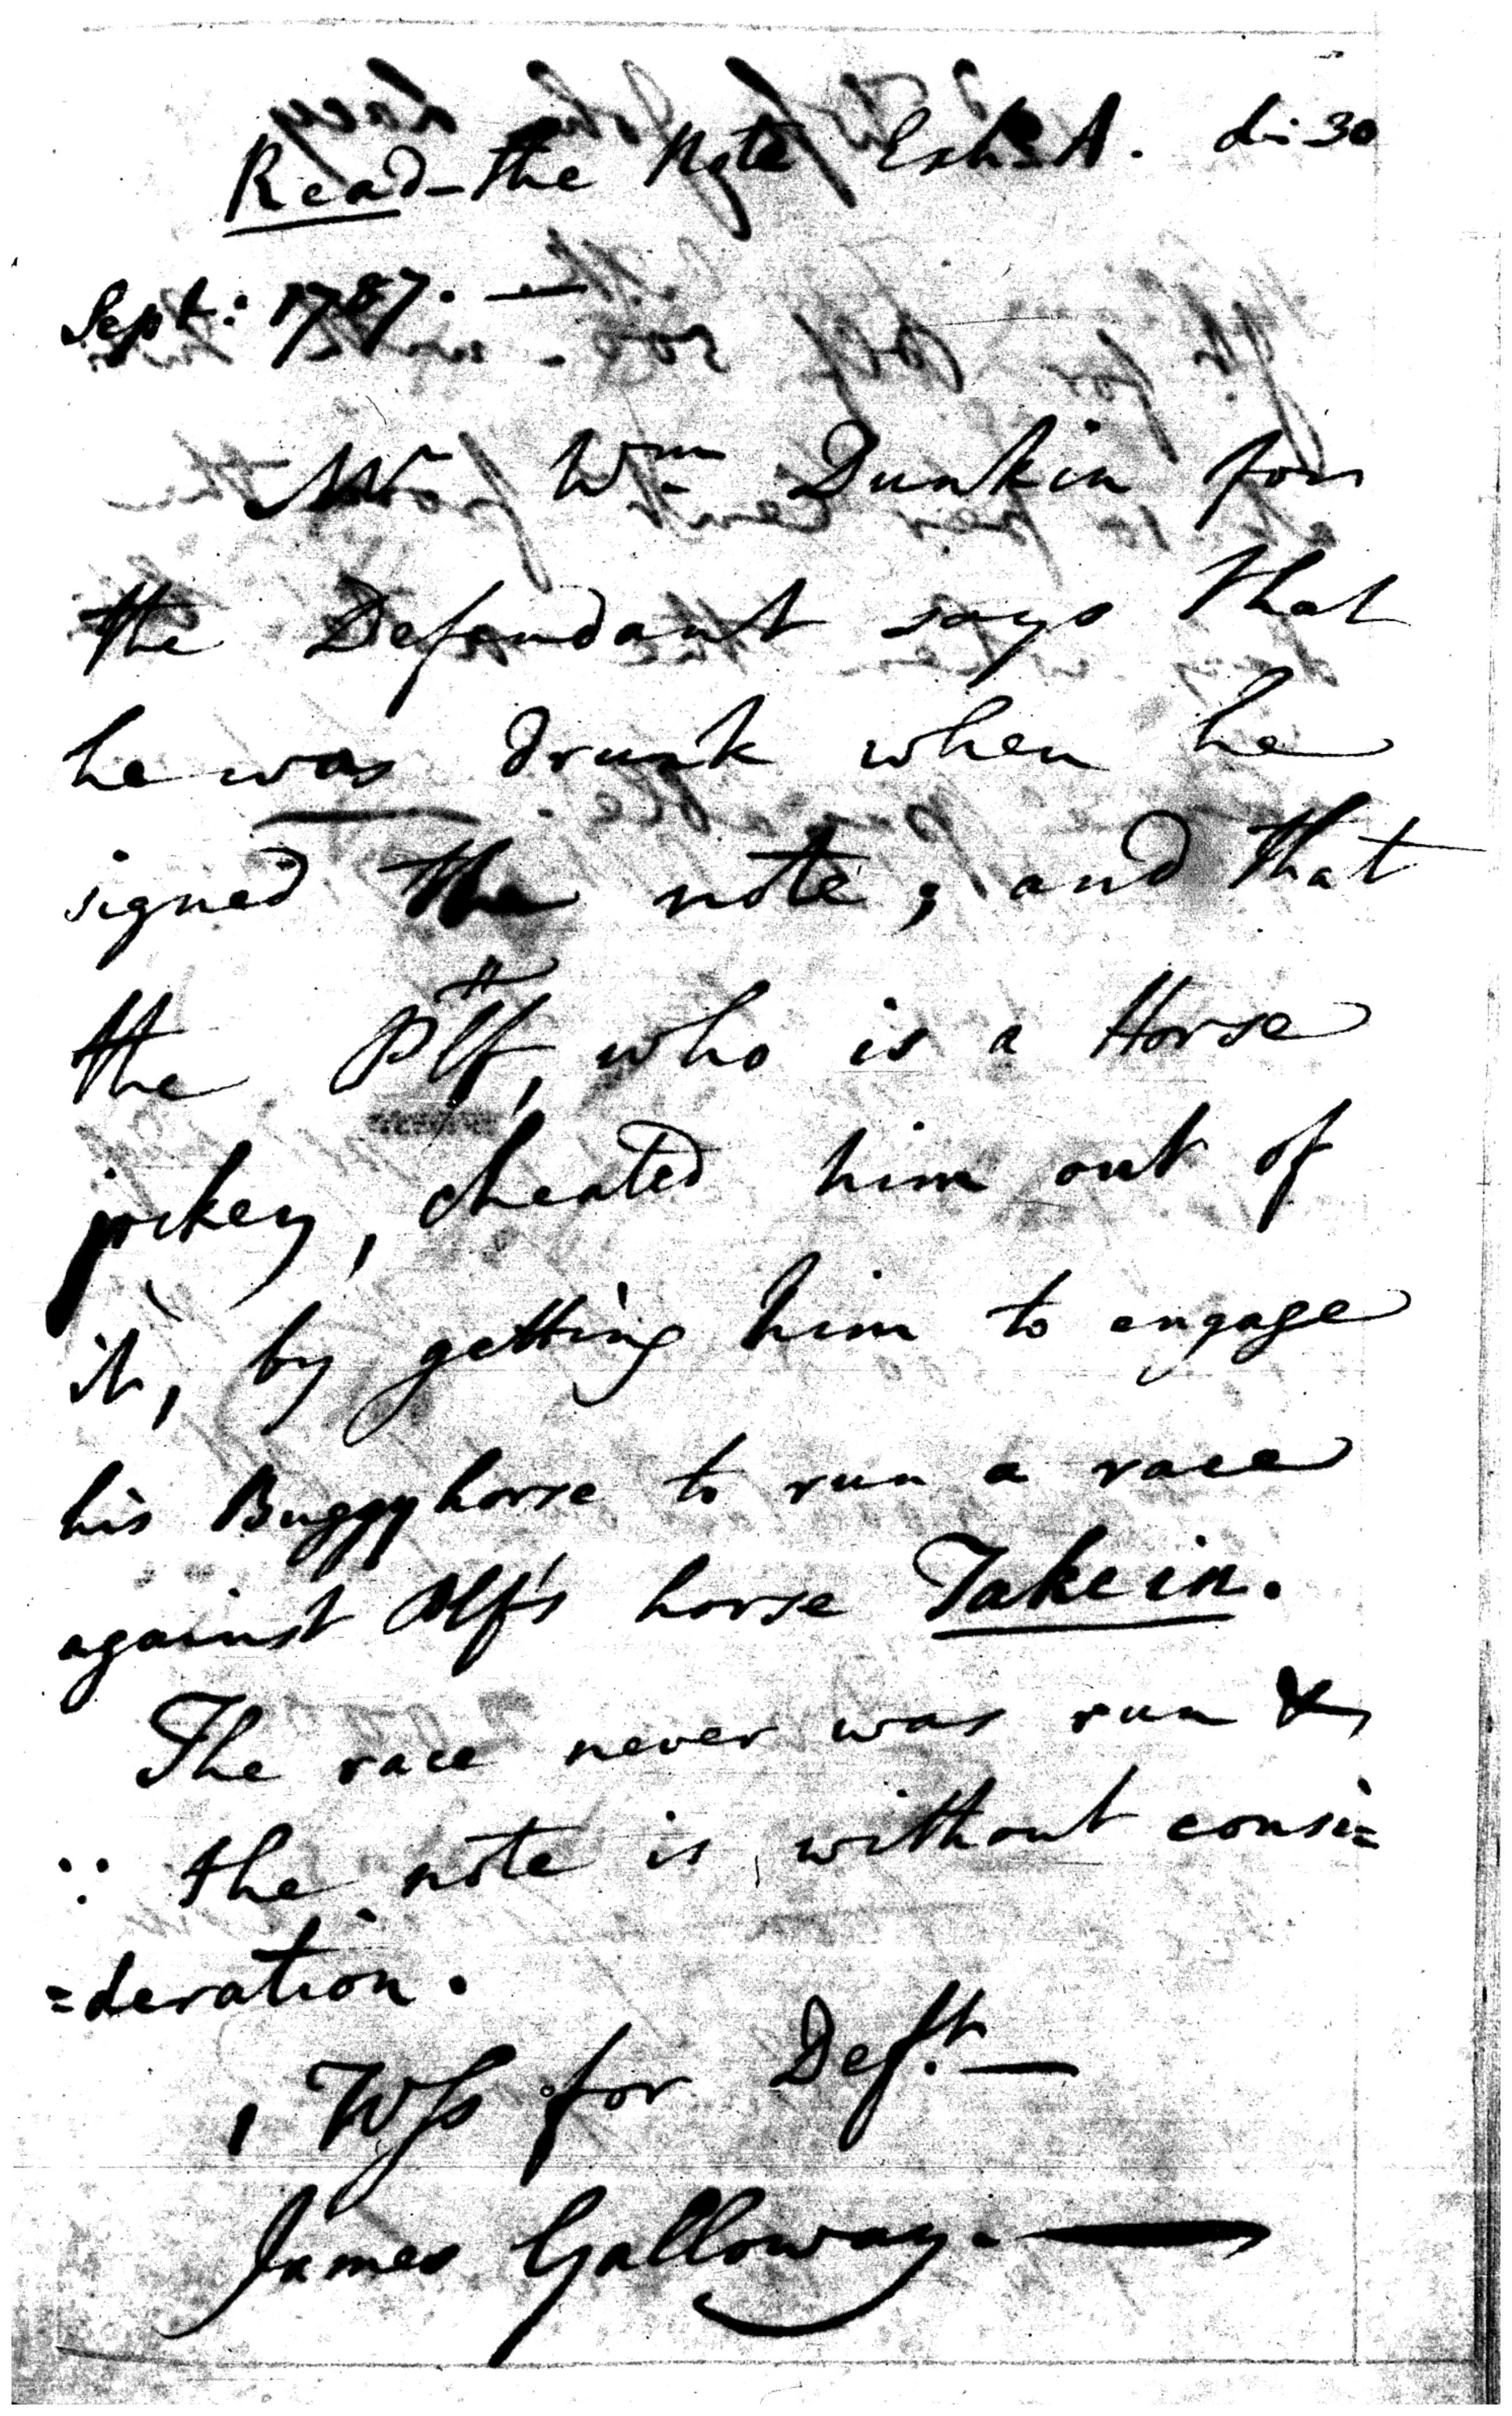 Read the Note Exh: A. d: 30
Sept: 1787. —
Mr Wm Dunkin for
the Defendant says that
he was drunk when he
signed the note; and that
the Plff, who is a Horse
jockey, cheated him out of
it, by getting him to engage
his Buggy horse to run a race
against Plf's horse Takein.
The race never was run &
∵ the note is without consi=
=deration.
1, Wss for Deft. —
James Galloway. —